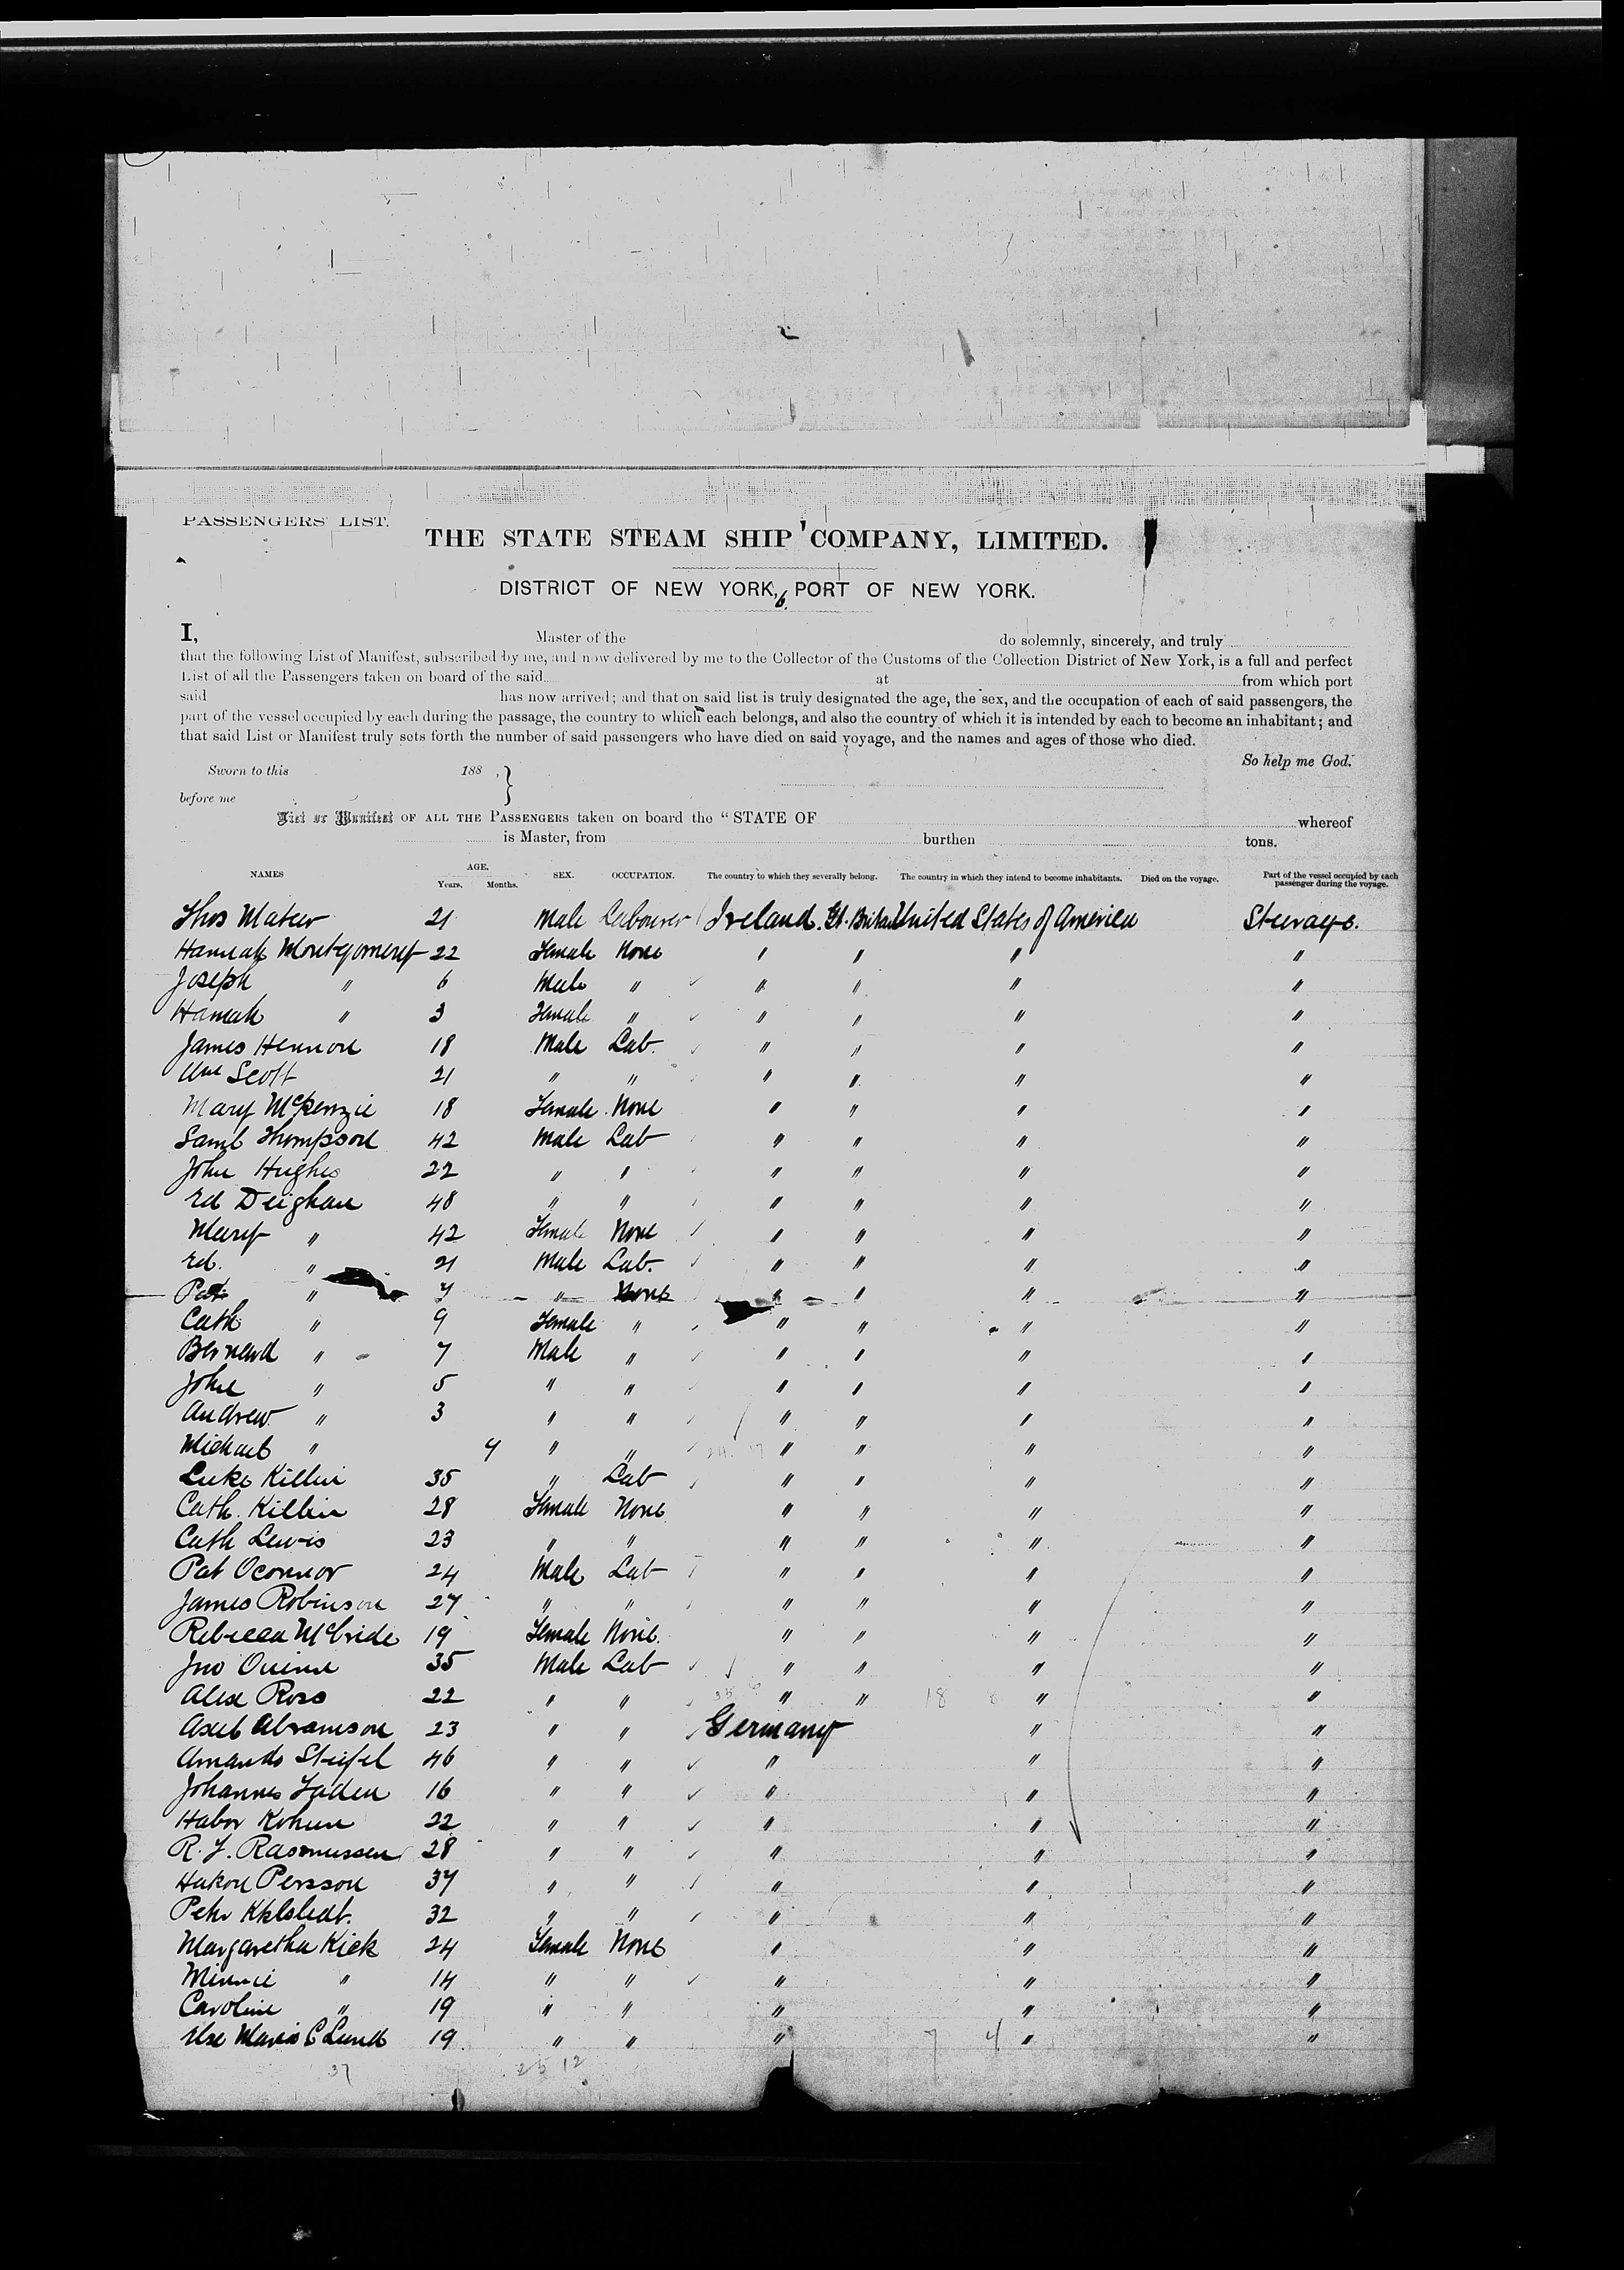 PASSENGERS' LIST.
THE STATE STEAM SHIP COMPANY, LIMITED.
DISTRICT OF NEW YORK, PORT OF NEW YORK.
I, Master of the do solemnly, sincerely, and truly
that the following List of Manifest, subscribed by me, and now delivered by me to the Collector of the Customs of the Collection District of New York, is a full and perfect
List of all the Passengers taken on board of the said at from which port
said has now arrived; and that on said list is truly designated the age, the sex, and the occupation of each of said passengers, the
part of the vessel occupied by each during the passage, the country to which each belongs, and also the country of which it is intended by each to become an inhabitant; and
that said List or Manifest truly sets forth the number of said passengers who have died on said voyage, and the names and ages of those who died.
So help me God.
Sworn to this 188 , }
before me
List or Manifest OF ALL THE PASSENGERS taken on board the "STATE OF whereof
is Master, from burthen tons.
NAMES AGE. Years. Months. SEX. OCCUPATION. The country to which they severally belong. The country in which they intend to become inhabitants. Died on the voyage. Part of the vessel occupied by each passenger during the voyage.
Thos 21 Male Labourer Ireland. Gt. Britain United States of America Steerage.
Hannah Montgomery 22 Female None " " " "
Joseph " 6 Male " " " " "
Hannah " 3 Female " " " " "
James Hennon 18 Male Lab. " " " "
Wm Scott 21 " " " " " "
Mary McKenzie 18 Female None " " " "
Saml Thompson 42 Male Lab " " " "
John Hughes 22 " " " " " "
Ed Deighan 48 " " " " " "
Mary " 42 Female None " " " "
Ed. " 21 Male Lab. " " " "
Pat " " None " " " "
Cath " 9 Female " " " " "
Bernard " 7 Male " " " " "
John " 5 " " " " " "
Andrew " 3 " " " " " "
Michael " " " " " " "
Luke Killin 35 " Lab " " " "
Cath. Killin 28 Female None " " " "
Cath Lewis 23 " " " " " "
Pat Oconnor 24 Male Lab " " " "
James Robinson 27 " " " " " "
Rebecca McBride 19 Female None. " " " "
Jno 35 Male Lab " " " "
Alex Ross 22 " " " " " "
Axel Abramson 23 " " Germany " "
Amando Stiefel 46 " " " " "
Johannes 16 " " " " "
22 " " " " "
R. J. Rasmussen 28 " " " " "
Hakon Persson 37 " " " " "
Peter 32 " " " " "
Margaretha Kick 24 Female None " " "
Minnie " 14 " " " " "
Caroline " 19 " " " " "
Else Maria C Lund 19 " " " " "
37 25 12 7 4